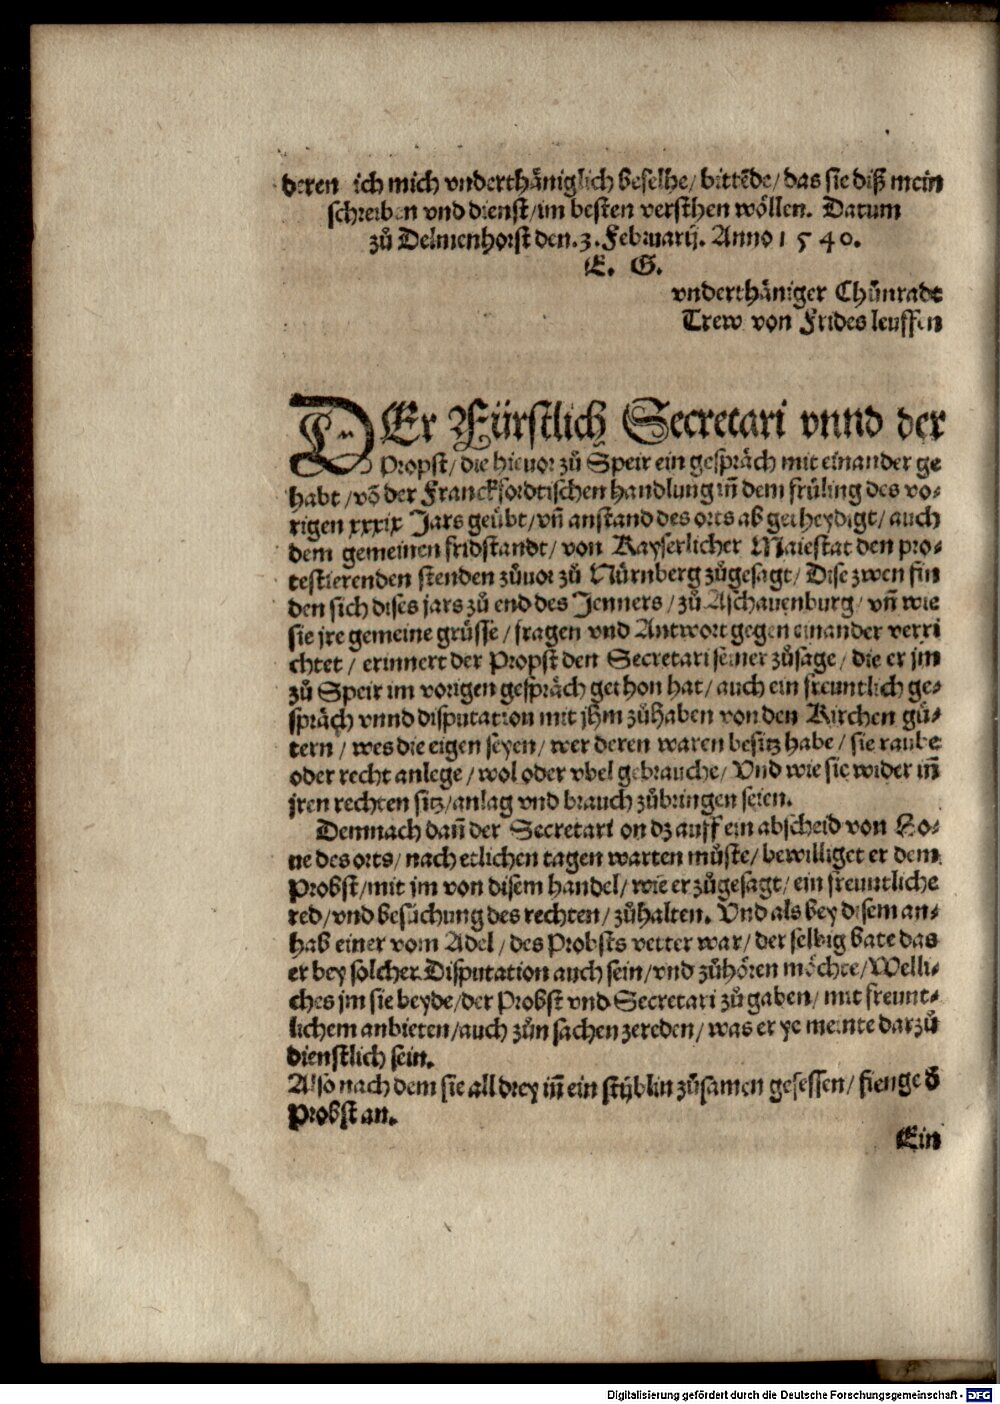 deren ich mich vnderthäniglich befelhe/ bittẽde/ das sie diß mein
schreiben vnd dienst/ im besten versthen wöllen. Datum
zů Delmenhorst den .3. Februarij. Anno 1540.
E. G.
vnderthäniger Chůnradt
Trew von Frides leuffen
DEr Fürstlich Secretari vnnd der
Propst/ die hieuor zů Speir ein gespräch mit einander ge
habt/ võ der Franckfordtischen handlung iñ dem früling des vo-
rigen xxxix Jars geübt/ vñ anstand des orts ab getheydigt/ auch
dem gemeinen fridstandt/ von Kayserlicher Maiestat den pro-
testierenden stenden zůuor zů Nürnberg zůgesagt/ Dise zwen fin
den sich dises jars zů end des Jenners/ zů Aschauenburg/ vñ wie
sie jre gemeine grüsse/ fragen vnd Antwort gegen einander verri
chtet/ erinnert der Propst den Secretari seiner zůsage/ die er jm
zů Speir im vorigen gespräch gethon hat/ auch ein freuntlich ge-
spräch vnnd disputation mit jhm zůhaben von den Kirchen gü-
tern/ wes die eigen seyen/ wer deren waren besitz habe/ sie raube
oder recht anlege/ wol oder vbel gebrauche/ Vnd wie sie wider iñ
jren rechten sitz/ anlag vnd brauch zůbringen seien.
Demnach dañ der Secretari on dz auff ein abscheid von Ho-
ne des orts/ nach etlichen tagen warten můste/ bewilliget er dem
Probst/ mit jm von disem handel/ wie er zůgesagt/ ein freuntliche
red/ vnd besůchung des rechten/ zůhalten. Vnd als bey disem an-
hab einer vom Adel/ des Probsts vetter war/ der selbig bate das
er bey solcher Disputation auch sein/ vnd zůhören möchte/ Welli-
ches jm sie beyde/ der Probst vnd Secretari zů gaben/ mit freunt-
lichem anbieten/ auch zůn sachen zereden/ was er ye meinte darzů
dienstlich sein.
Also nach dem sie all drey iñ ein stüblin zůsamen gesessen/ fienge d̕
Probst an.
Ein
Digitalisierung gefördert durch die Deutsche Forschungsgemeinschaft - DFG